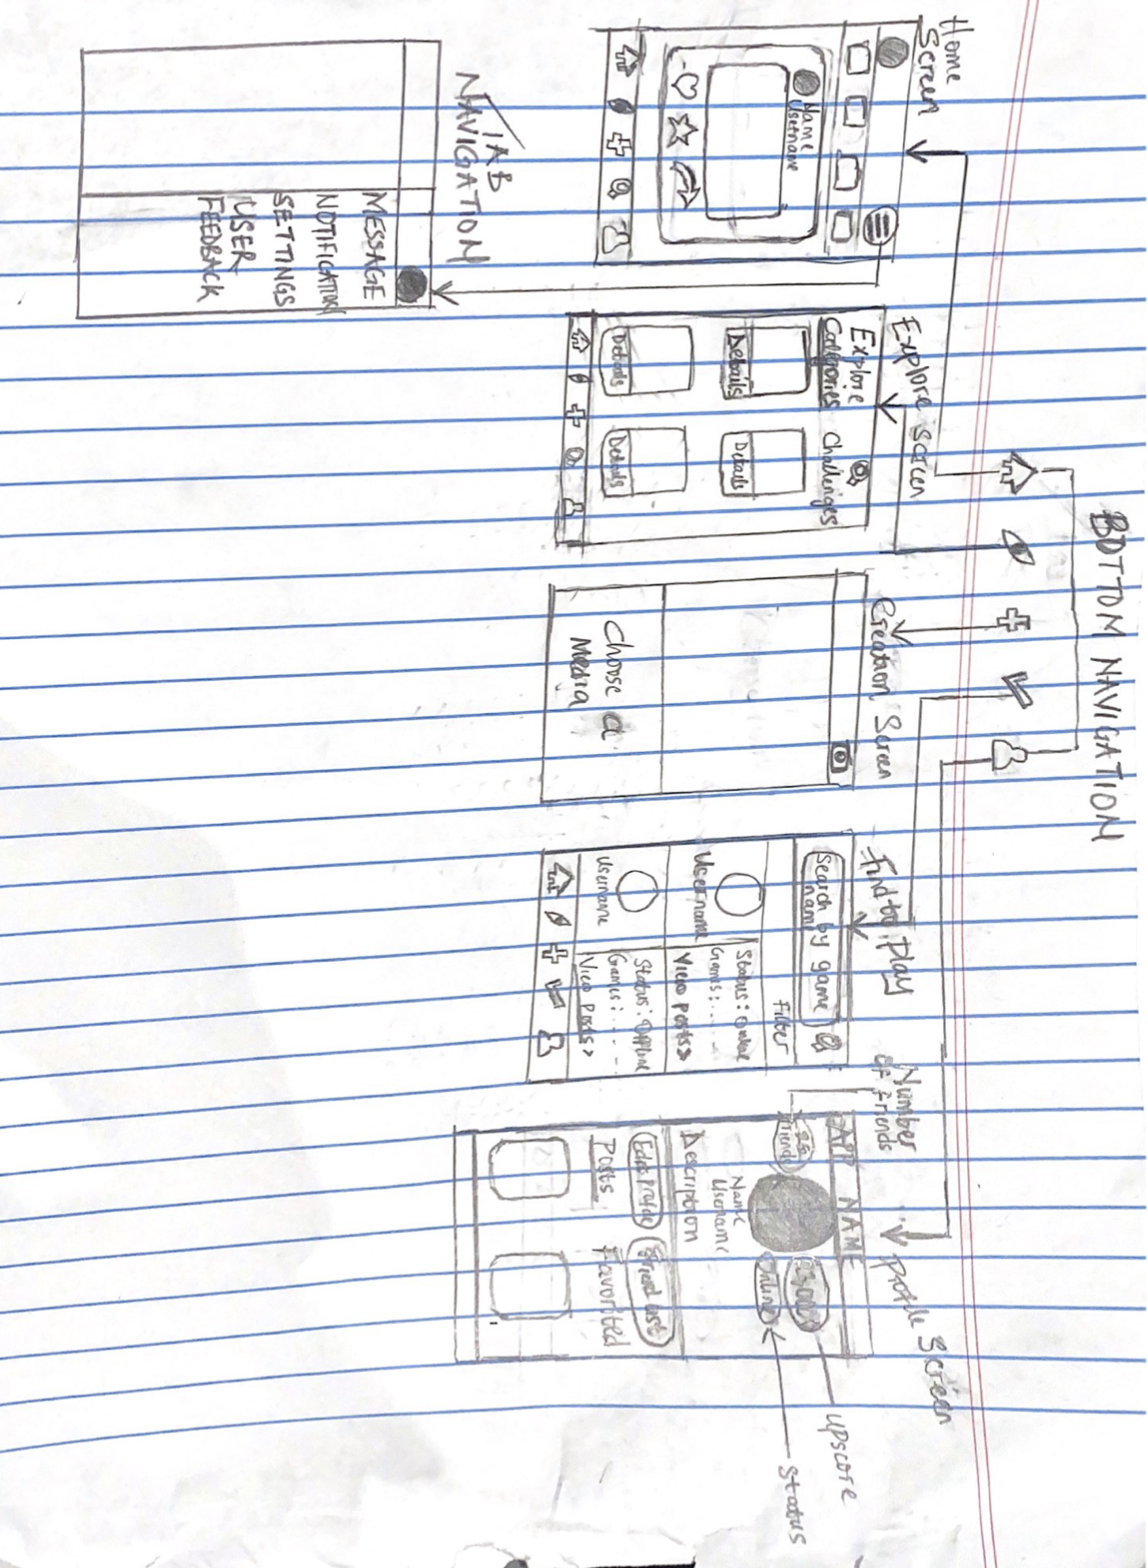 BOTTOM NAVIGATION
Home
Screen
Name
Username
TAB
NAVIGATION
MESSAGE
NOTIFICATION
SETTINGS
USER
FEEDBACK
Explore screen
Explore
Categories Challenges
Details Details
Details Details
Creation Screen
Choose a
Media
Find to Play
Search by game
name
Filter
Username
Status: Online
Games: ...
View posts>
Username
Status: Offline
Games: ...
View Posts>
Number
of friends
Profile Screen
APP NAME
Name
Username
Description
Edit profile Friend List
Posts Favorited
upscore
status